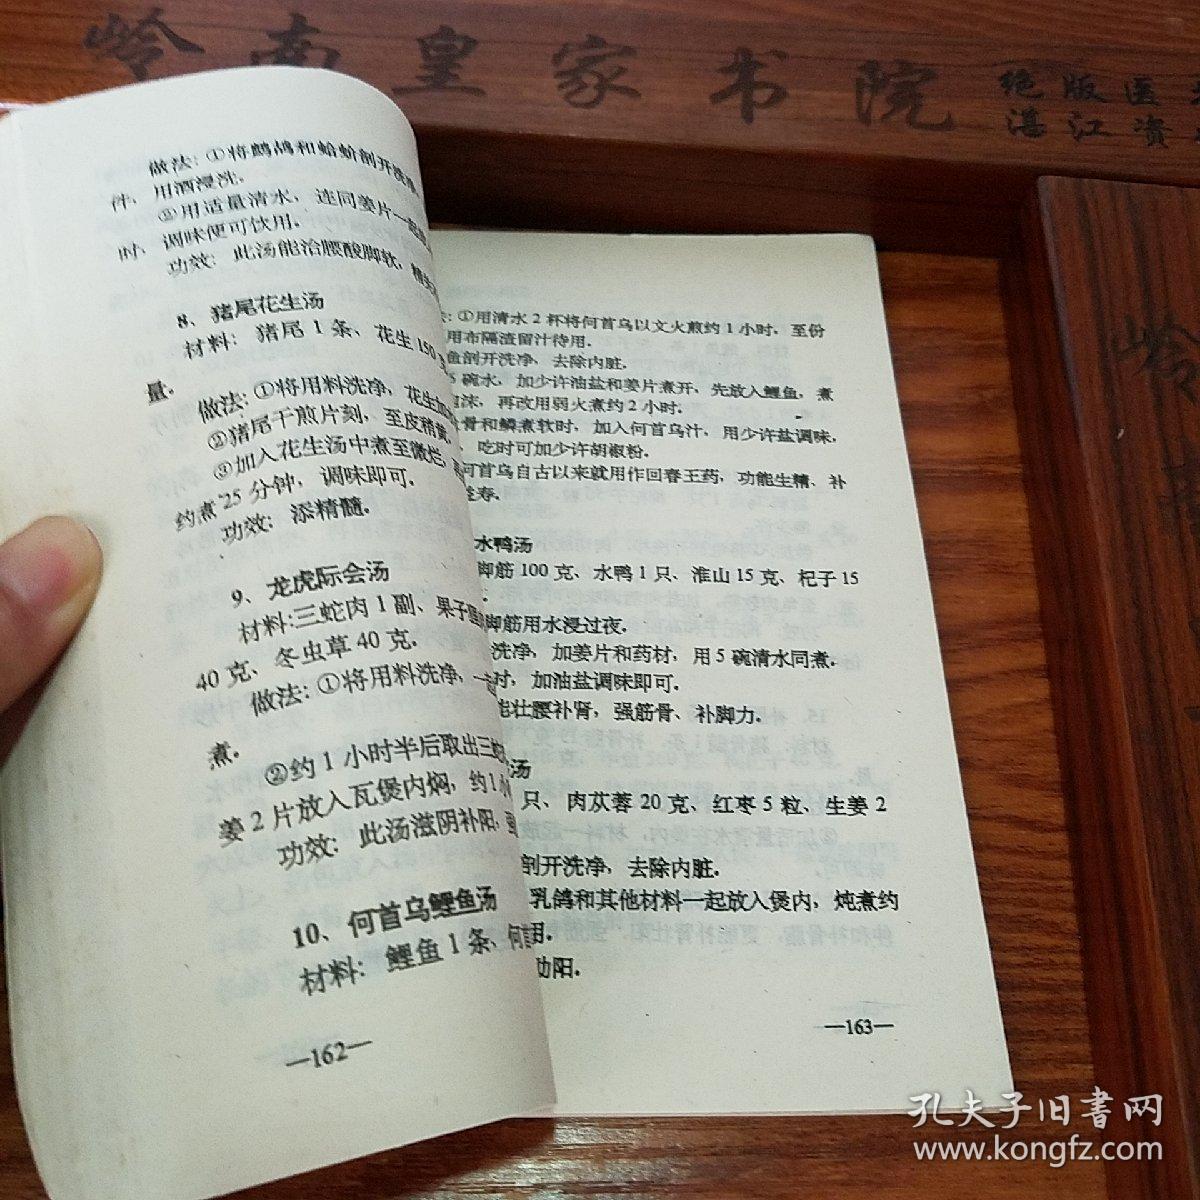 岭南皇家书院
绝版医
湛江资
做法：①将鹧鸪和蛤蚧剖开洗净，
件，用酒浸洗．
②用适量清水，连同姜片一起
时，调味便可饮用．
功效：此汤能治腰酸脚软，精
8、猪尾花生汤
材料：猪尾1条、花生150
量．
做法：①将用料洗净，花生加
②猪尾干煎片刻，至皮稍黄，
③加入花生汤中煮至微烂，
约煮25分钟，调味即可．
功效：添精髓．
9、龙虎际会汤
材料:三蛇肉1副、果子狸
40克、冬虫草40克．
做法：①将用料洗净，一
煮．
②约1小时半后取出三蛇
姜2片放入瓦煲内焖，约1小
功效：此汤滋阴补阳，
10、何首乌鲤鱼汤
材料：鲤鱼1条、何首
—162—
：①用清水2杯将何首乌以文火煎约1小时，至份
用布隔渣留汁待用．
鱼剖开洗净，去除内脏．
5碗水，加少许油盐和姜片煮开，先放入鲤鱼，煮
沫，再改用弱火煮约2小时．
骨和鳞煮软时，加入何首乌汁，用少许盐调味，
吃时可加少许胡椒粉．
何首乌自古以来就用作回春王药，功能生精、补
寿．
水鸭汤
脚筋100克、水鸭1只、淮山15克、杞子15
脚筋用水浸过夜．
洗净，加姜片和药材，用5碗清水同煮．
时，加油盐调味即可．
能壮腰补肾，强筋骨、补脚力．
汤
只、肉苁蓉20克、红枣5粒、生姜2
剖开洗净，去除内脏．
乳鸽和其他材料一起放入煲内，炖煮约
用．
助阳．
—163—
岭
孔夫子旧書网
www.kongfz.com